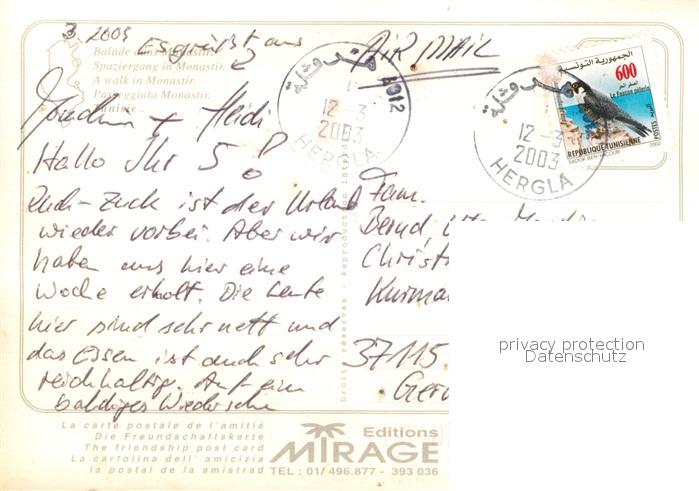 3 2003
Es grüßt aus
Balade dans Monastir.
Spaziergang in Monastir.
A walk in Monastir.
Passeggiata Monastir.
Tunisie
+ Heidi
Hallo Ihr 5!
Ruck-Zuck ist der Urlaub
wieder vorbei. Aber wir
haben uns hier eine
Woche erholt. Die Leute
hier sind sehr nett und
das Essen ist auch sehr
reichhaltig. Auf ein
baldiges Wiedersehn
AIR MAIL
12-3
2003
HERGLA
4012
12-3
2003
HERGLA
الجمهورية التونسية
600
Le Faucon pèlerin
REPUBLIQUE TUNISIENNE
2002
Fam.
Bernd
Christi
Kurma
37115
Ger
Droits réservés - Reproduction interdite
privacy protection
Datenschutz
La carte postale de l'amitié
Die Freundschaftskarte
The friendship post card
La cartolina dell' amicizia
la postal de la amistrad
Editions
MIRAGE
TEL : 01/ 496.877 - 393 036